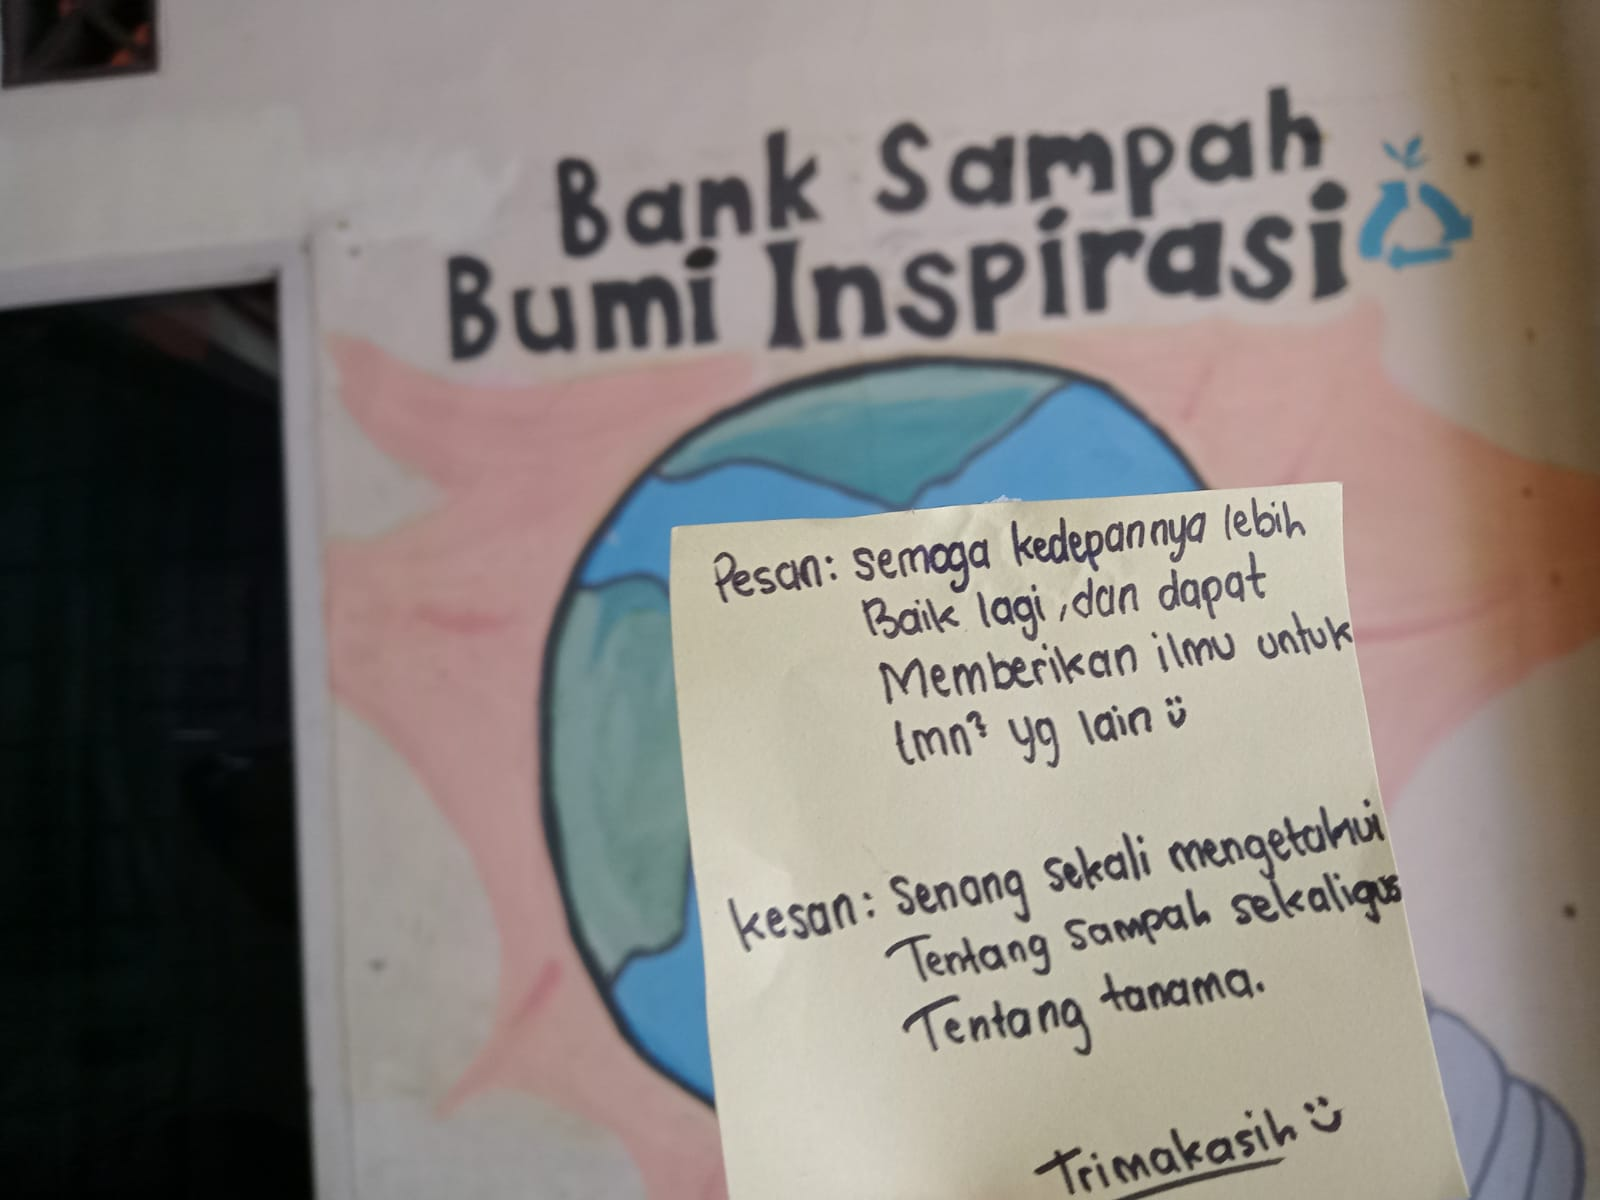 Bank Sampah
Bumi Inspirasi
Pesan: semoga kedepannya lebih
Baik lagi, dan dapat
Memberikan ilmu untuk
tmn² yg lain
kesan: Senang sekali mengetahui
Tentang Sampah sekaligus
Tentang tanama.
Trimakasih